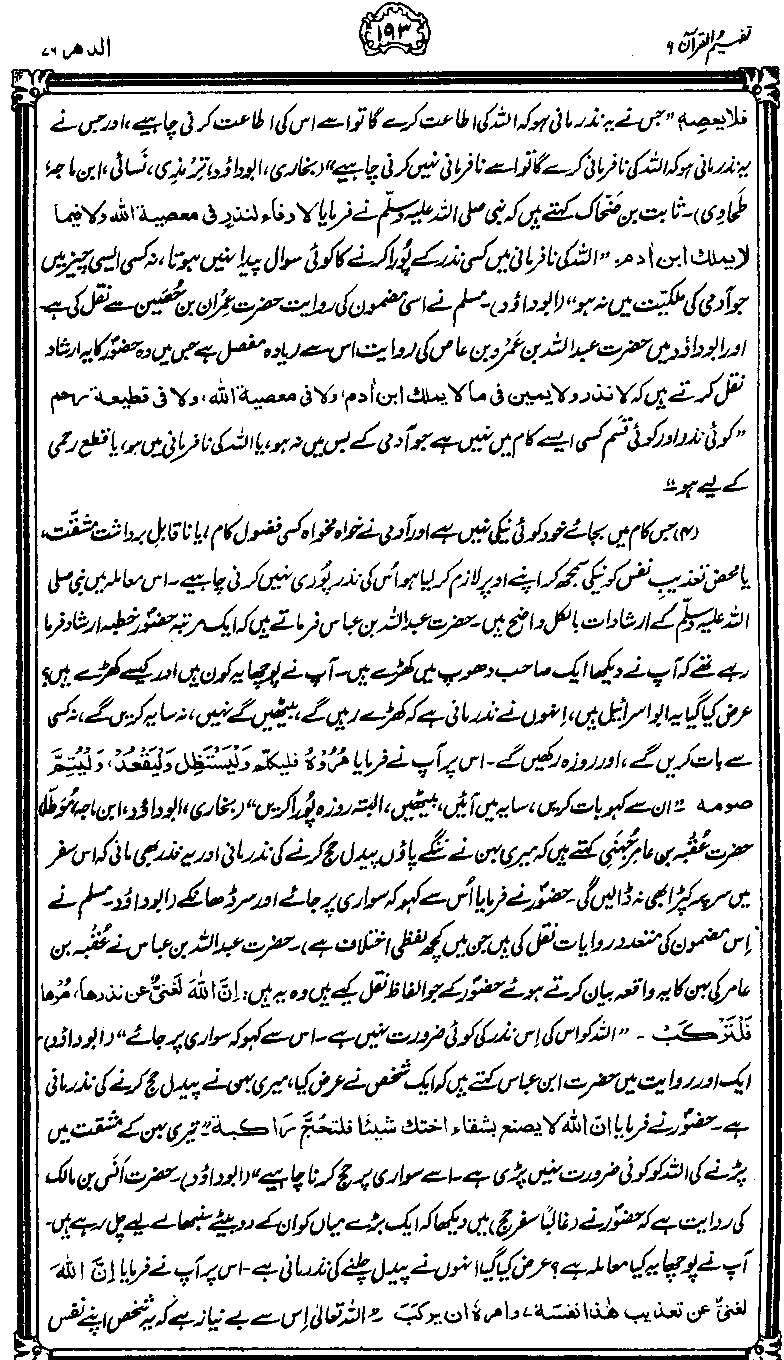 تفہیم القرآن ۶
۱۹۳
الدھر ۷۶
فلا يعصه ”جس نے یہ نذر مانی ہو کہ اللہ کی اطاعت کرے گا تو اسے اس کی اطاعت کرنی چاہیے، اور جس نے
یہ نذر مانی ہو کہ اللہ کی نافرمانی کرے گا تو اسے نافرمانی نہیں کرنی چاہیے“ (بخاری، ابوداؤد، ترمذی، نسائی، ابن ماجہ،
طحاوی)۔ ثابت بن ضحاک کہتے ہیں کہ نبی صلی اللہ علیہ وسلم نے فرمایا لا وفاء لنذر فی معصیة الله ولا فیما
لا یملك ابن اٰدم۔ ”اللہ کی نافرمانی میں کسی نذر کے پورا کرنے کا کوئی سوال پیدا نہیں ہوتا، نہ کسی ایسی چیز میں
جو آدمی کی ملکیت میں نہ ہو“ (ابوداؤد)۔ مسلم نے اسی مضمون کی روایت حضرت عمران بن حُصَین سے نقل کی ہے۔
اور ابوداؤد میں حضرت عبداللہ بن عمرو بن عاص کی روایت اس سے زیادہ مفصل ہے جس میں وہ حضورؐ کا یہ ارشاد
نقل کرتے ہیں کہ لا نذر ولا یمین فی ما لا یملك ابن اٰدم، ولا فی معصیة الله، ولا فی قطیعة رحم
”کوئی نذر اور کوئی قَسم کسی ایسے کام میں نہیں ہے جو آدمی کے بس میں نہ ہو، یا اللہ کی نافرمانی میں ہو، یا قطع رحمی
کے لیے ہو۔“
(۴) جس کام میں بجائے خود کوئی نیکی نہیں ہے اور آدمی نے خواہ مخواہ کسی فضول کام، یا ناقابل برداشت مشقت،
یا محض تعذیبِ نفس کو نیکی سمجھ کر اپنے اوپر لازم کر لیا ہو اُس کی نذر پوری نہیں کرنی چاہیے۔ اس معاملہ میں نبی صلی
اللہ علیہ وسلم کے ارشادات بالکل واضح ہیں۔ حضرت عبداللہ بن عباس فرماتے ہیں کہ ایک مرتبہ حضورؐ خطبہ ارشاد فرما
رہے تھے کہ آپ نے دیکھا ایک صاحب دھوپ میں کھڑے ہیں۔ آپ نے پوچھا یہ کون ہیں اور کیسے کھڑے ہیں؟
عرض کیا گیا یہ ابو اسرائیل ہیں، اِنہوں نے نذر مانی ہے کہ کھڑے رہیں گے، بیٹھیں گے نہیں، نہ سایہ کریں گے، نہ کسی
سے بات کریں گے، اور روزہ رکھیں گے۔ اس پر آپ نے فرمایا مُرُوْهُ فلیتکلم وَلْیَسْتَظِل ولْیَقْعُدْ، وَلْیُتِمَّ
صومہ ”ان سے کہو بات کریں، سایہ میں آئیں، بیٹھیں، البتہ روزہ پورا کریں“ (بخاری، ابوداؤد، ابن ماجہ، مُوَطَّا)
حضرت عُقبہ بن عامر جُہنِی کہتے ہیں کہ میری بہن نے ننگے پاؤں پیدل حج کرنے کی نذر مانی اور یہ نذر بھی مانی کہ اس سفر
میں سر پر کپڑا بھی نہ ڈالیں گی۔ حضورؐ نے فرمایا اُس سے کہو کہ سواری پر جائے اور سر ڈھانکے (ابوداؤد۔ مسلم نے
اِس مضمون کی متعدد روایات نقل کی ہیں جن میں کچھ لفظی اختلاف ہے)۔ حضرت عبداللہ بن عباس نے عُقبہ بن
عامر کی بہن کا یہ واقعہ بیان کرتے ہوئے حضورؐ کے جو الفاظ نقل کیے ہیں وہ یہ ہیں: اِنَّ اللهَ لَغَنِیٌّ عن نذرها، مُرْها
فَلْتَرْكَبْ۔ ”اللہ کو اس کی اِس نذر کی کوئی ضرورت نہیں ہے۔ اس سے کہو کہ سواری پر جائے“ (ابوداؤد)۔
ایک اور روایت میں حضرت ابن عباس کہتے ہیں کہ ایک شخص نے عرض کیا، میری بہن نے پیدل حج کرنے کی نذر مانی
ہے۔ حضورؐ نے فرمایا انّ الله لا یصنع بشقاء اختك شیئًا فلتحُجَّ راکبة ”تیری بہن کے مشقت میں
پڑنے کی اللہ کو کوئی ضرورت نہیں پڑی ہے۔ اسے سواری پر حج کرنا چاہیے“ (ابوداؤد)۔ حضرت اَنَس بن مالک
کی روایت ہے کہ حضورؐ نے (غالباً سفرِ حج میں) دیکھا کہ ایک بڑے میاں کو ان کے دو بیٹے سنبھالے لیے چل رہے ہیں۔
آپ نے پوچھا یہ کیا معاملہ ہے؟ عرض کیا گیا انہوں نے پیدل چلنے کی نذر مانی ہے۔ اس پر آپ نے فرمایا اِنَّ اللهَ
لغنیٌّ عن تعذیب هٰذا نفسهٗ، وامرهٗ ان یرکب ”اللہ تعالیٰ اِس سے بے نیاز ہے کہ یہ شخص اپنے نفس